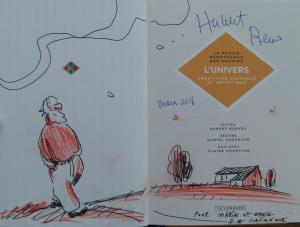 Hubert
Reeves
LA PETITE
BÉDÉTHÈQUE
DES SAVOIRS
L'UNIVERS
CRÉATIVITÉ COSMIQUE
ET ARTISTIQUE
Mars 2016
TEXTES
HUBERT REEVES
DESSINS
DANIEL CASANAVE
COULEURS
CLAIRE CHAMPION
LE LOMBARD
POUR MARIE ET GREG
D. CASANAVE